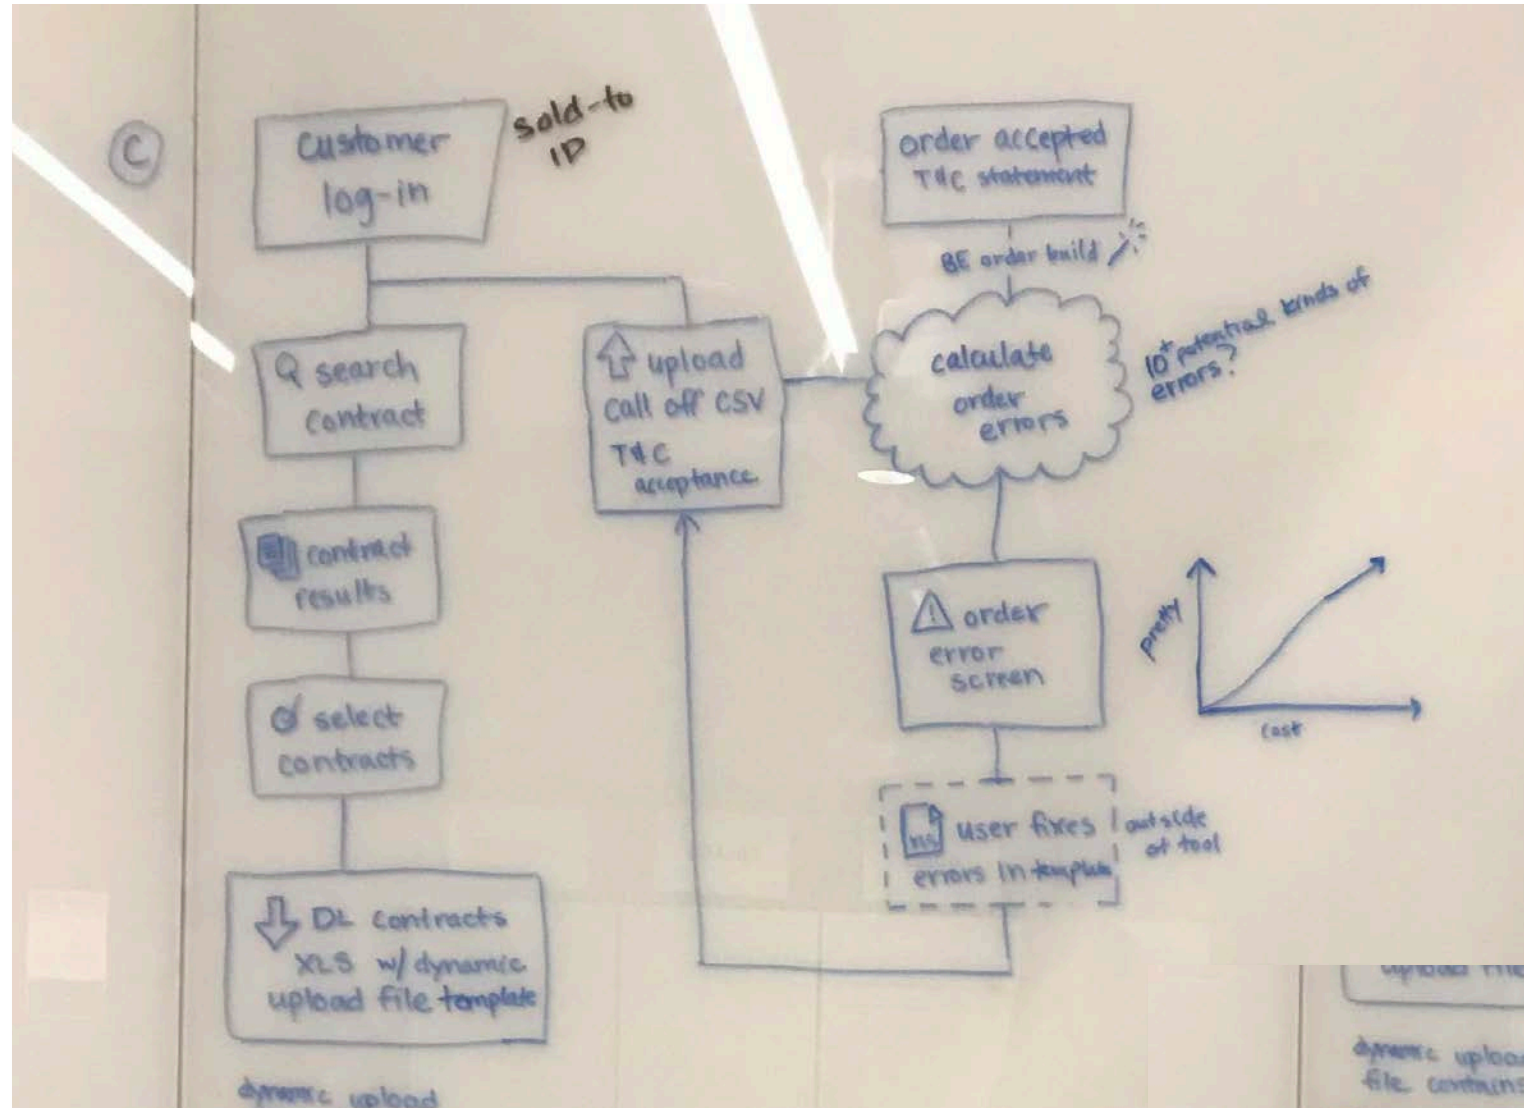 C
customer
log-in
sold-to
ID
search
contract
contract
results
select
contracts
DL contracts
XLS w/ dynamic
upload file template
dynamic upload
upload
call off CSV
T&C
acceptance
order accepted
T&C statement
BE order build
calculate
order
errors
10+ potential kinds of
errors?
order
error
screen
user fixes
errors in template
outside
of tool
pretty
cost
upload file
dynamic upload
file contains